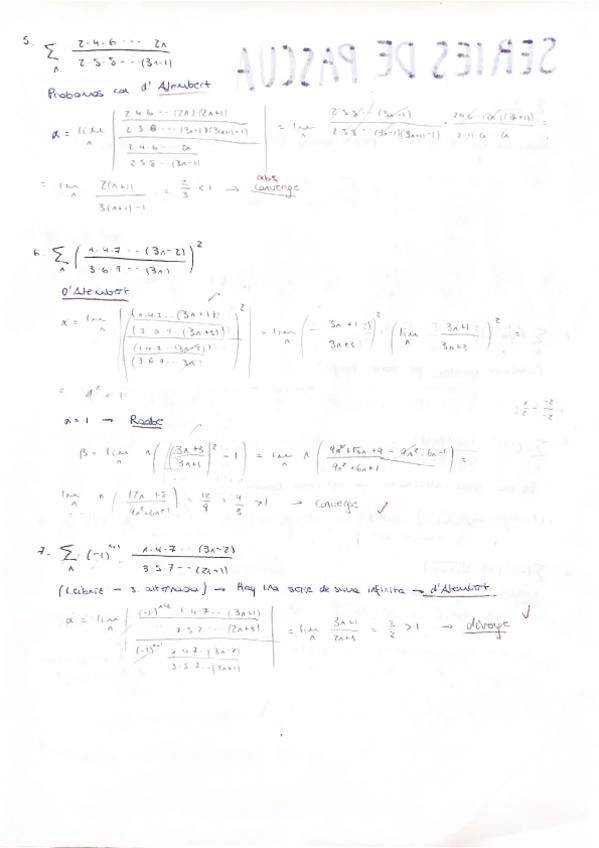 SERIES DE PASCUA
5. ∑n (2·4·6···2n)/(2·5·8···(3n-1))
Probamos con d'Alembert
α = lim n |((2·4·6···(2n)·(2n+1))/(2·5·8···(3n-1)(3(n+1)-1)))/((2·4·6···2n)/(2·5·8···(3n-1)))| = lim n (2·5·8···(3n-1))/(2·5·8···(3n-1)(3(n+1)-1)) ·
= lim n 2(n+1)/(3(n+1)-1) = 2/3 < 1 → abs converge
6. ∑n ((1·4·7···(3n-2))/(3·6·9···(3n)))²
D'Alembert
α = lim n = lim n (lim n (3n+1)/(3n+3))² =
= 1² < 1
α = 1 → Raabe
β = lim n n(((3n+3)/(3n+1))² - 1) = lim n n((9n²+18n+9-9n²-6n-1)/(9n²+6n+1)) =
lim n n((12n+8)/(9n²+6n+1)) = 12/9 = 4/3 > 1 → converge ✓
7. ∑n (-1)ⁿ⁺¹ (1·4·7···(3n-2))/(3·5·7···(2n+1))
(Leibniz - s. alternadas) → Hay una serie de suma infinita → d'Alembert
α = lim n |(((-1)ⁿ⁺² 1·4·7···(3n+1))/(3·5·7···(2n+3)))/((-1)ⁿ⁺¹ (1·4·7···(3n-2))/(3·5·7···(2n+1)))| = lim n (3n+1)/(2n+3) = 3/2 > 1 → diverge ✓